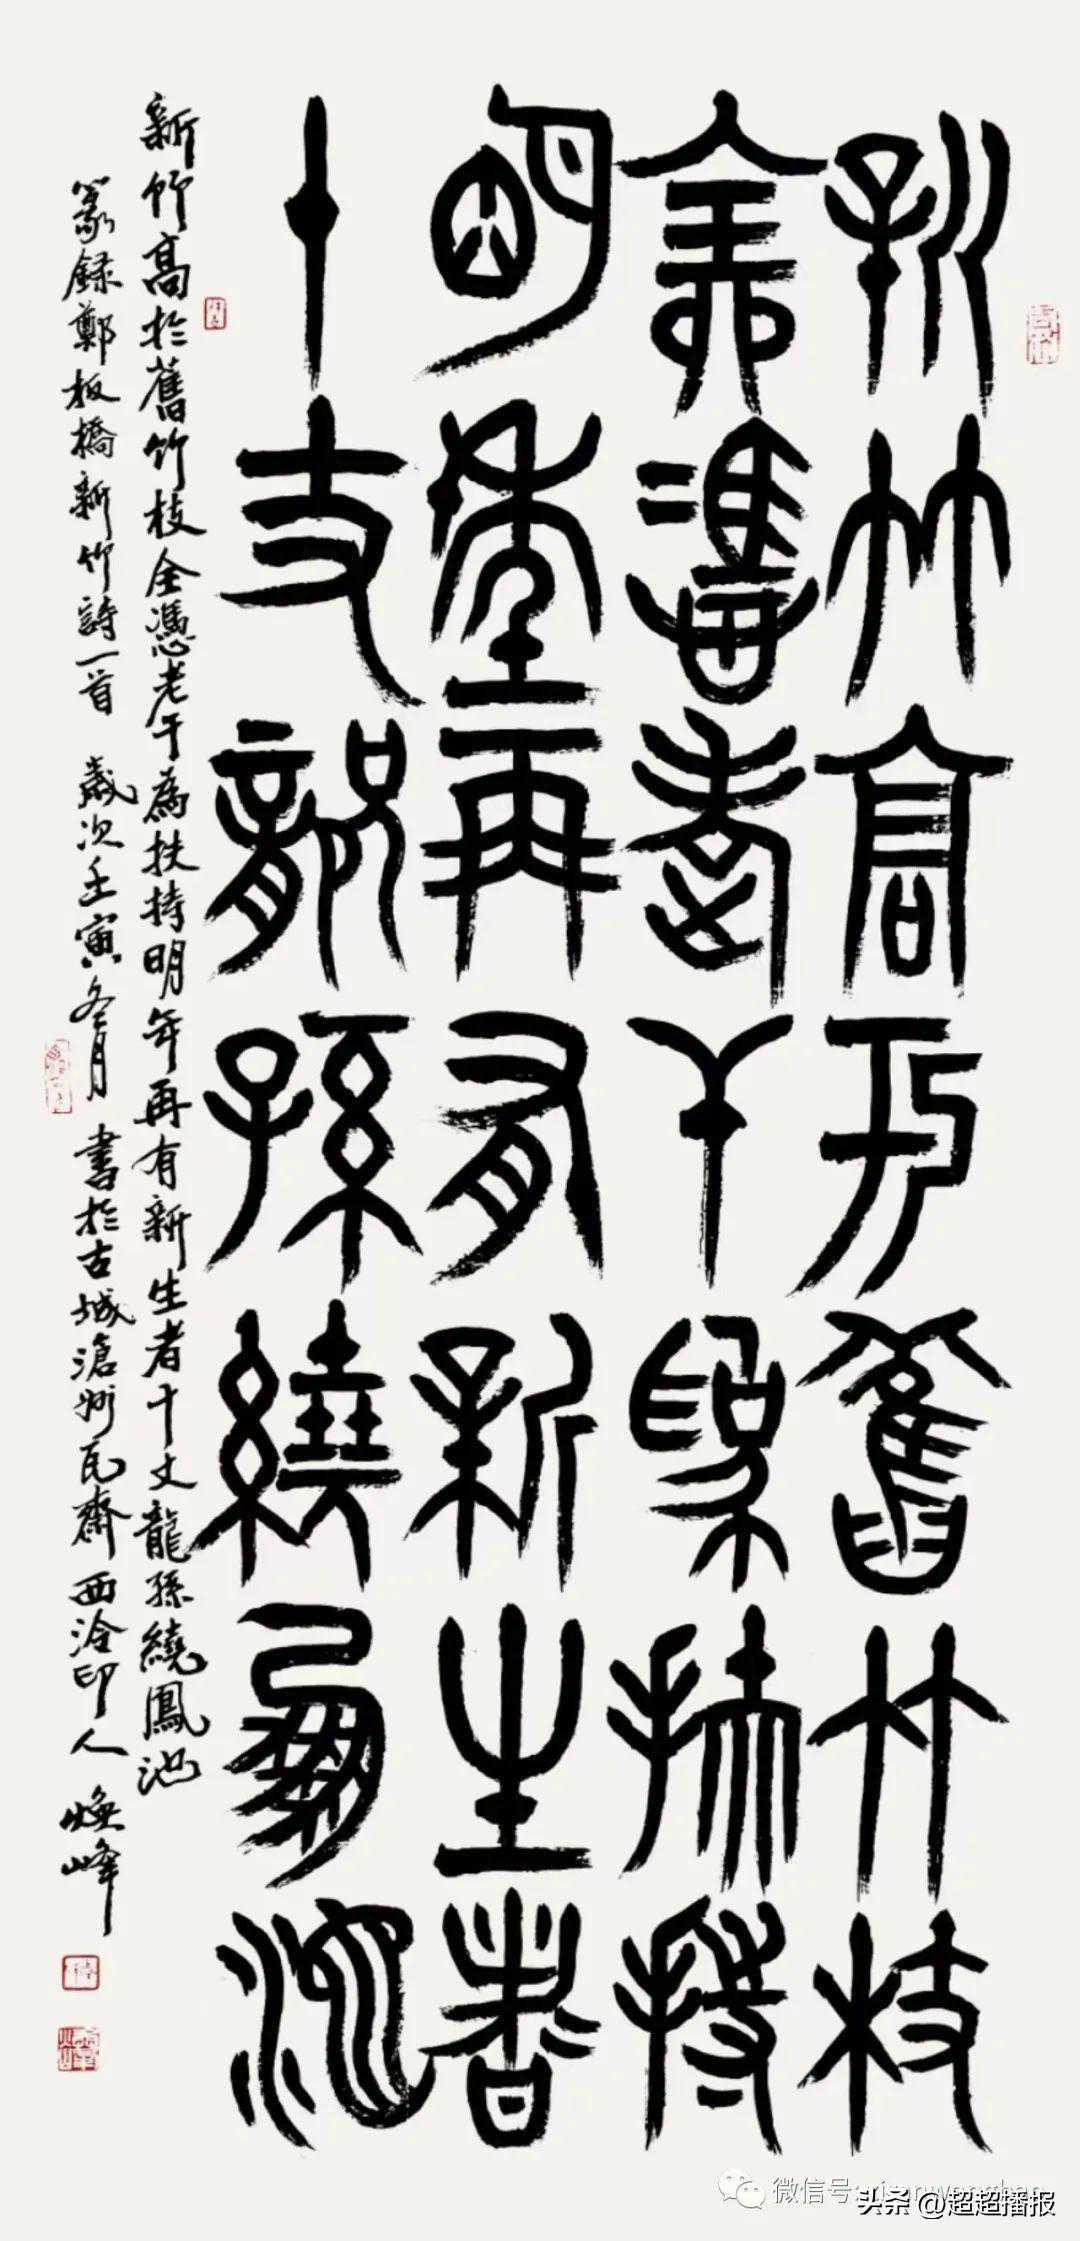 新竹高于舊竹枝
全憑老干為扶持
明年再有新生者
十丈龍孫繞鳳池
新竹高於舊竹枝全憑老干為扶持明年再有新生者十丈龍孫繞鳳池
篆録鄭板橋新竹詩一首 歲次壬寅冬月 書於古城滄州瓦齋西泠印人 煥峰
微信号:
头条 @超超播报